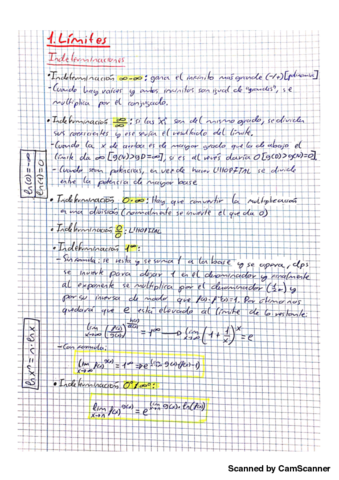 1. Límites
Indeterminaciones
• Indeterminación ∞-∞: gana el infinito más grande (-/+) [polinomio]
- Cuando hay raíces y ambos infinitos son igual de grandes, se
multiplica por el conjugado.
• Indeterminación ∞/∞: si las "x" son del mismo grado, se dividen
sus coeficientes y ese sería el resultado del límite.
- Cuando la x de arriba es de mayor grado que la de abajo el
límite da ∞ y si es al revés daría 0
- Cuando sean potencias, en vez de hacer L'HOPITAL se divide
entre la potencia de mayor base
• Indeterminación 0·∞: Hay que convertir la multiplicación
en una división (normalmente se invierte el que da 0)
• Indeterminación 0/0: L'HOPITAL
• Indeterminación 1^∞:
- Sin fórmula: se resta y se suma 1 a la base y se opera, dps
se invierte para dejar 1 en el numerador y finalmente
al exponente se multiplica por el denominador y
por su inversa de modo que Por último nos
quedará que e está elevado al límite de lo restante.
lim x→∞ = 1^∞ → lim x→∞ (1 + 1/x)^x = e
- Con fórmula:
lim x→∞ f(x)^g(x) = 1^∞ ⇒ e^lim g(x)·(f(x)-1)
• Indeterminación
lim f(x)^g(x) = e^lim g(x)·ln(f(x))
ln(0) = -∞
ln(1) = 0
ln x^n = n·ln x
Scanned by CamScanner